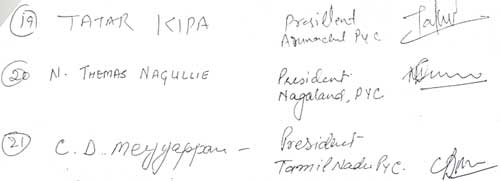 19 TATAR KIPA Presillent Arunachal PYC
20 N. THEMAS NAGULLIE President Nagaland, PYC
21 C. D. Meyyappan - President Tamil Nadu PYC.